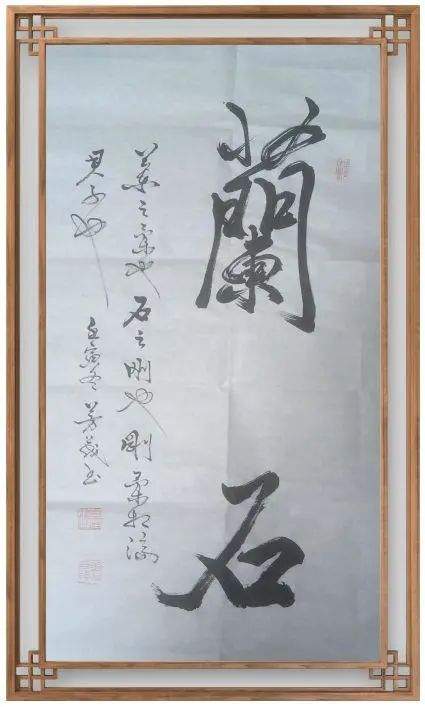 蘭石
蘭之柔也石之剛也剛柔相濟
君子也 壬寅冬 芳義书